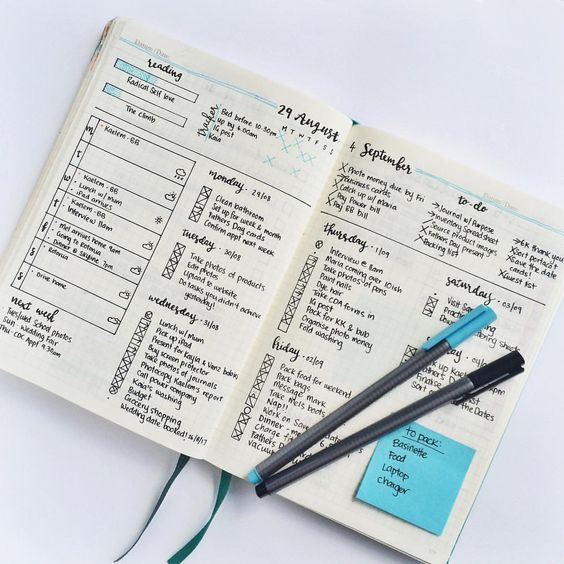 Datum / Date:
reading
Radical Self love
The Climb
29 August
tracker
M T W T F S S
Bed before 10.30pm
up by 6.00am
IG post
Kaia
m
Kaelem - BB
t
w
Kaelem - BB
Lunch w/ mum
iPad arrives
t
Kaelem - BB
Interview 11am
f
Mel arrives home 2am
Dinner @ Skyline 7pm
s
Rotorua
s
Drive home
next week
Tues/Wed School photos
Sun - Wedding Fair
Thu - CDC Appt 9.30am
monday - 29/08
Clean bathroom
Set up for week & month
Fathers Day cards
Confirm appt next week
tuesday - 30/08
Take photos of products
Edit photos
Upload to website
Do tasks you didn't achieve
yesterday!
wednesday - 31/08
Lunch w/ Mum
Pick up iPad
Present for Kayla &
Buy screen protector
Take photos of journals
Photocopy Kaelems report
Call power company
Kaia's washing
Budget
Grocery shopping
Wedding date booked!
4 September
Datum / Date:
to-do
Photo money due by Fri
Business cards
Catch up w/ Maria
Pay Power bill
Pay BB bill
Journal w/ Purpose
Inventory Spreadsheet
Source product images
Father Day present
Packing list
Sort
Save the date
cards!
Guest list
thursday - 1/09
Interview @ 11am
Maria coming over 10ish
Take photos of pens
Paint nails
Dye hair
Take CDA forms in
IG post
Pack for KK & bub
Organise photo money
Fold washing
friday - 02/09
Pack food for weekend
Pack bags
Message mark
Take Mels boots
Nap!!
Work on
Dinner
Charge
Fathers
vacuum
saturday - 03/09
Visit
to pack:
Basinette
Food
Laptop
charger